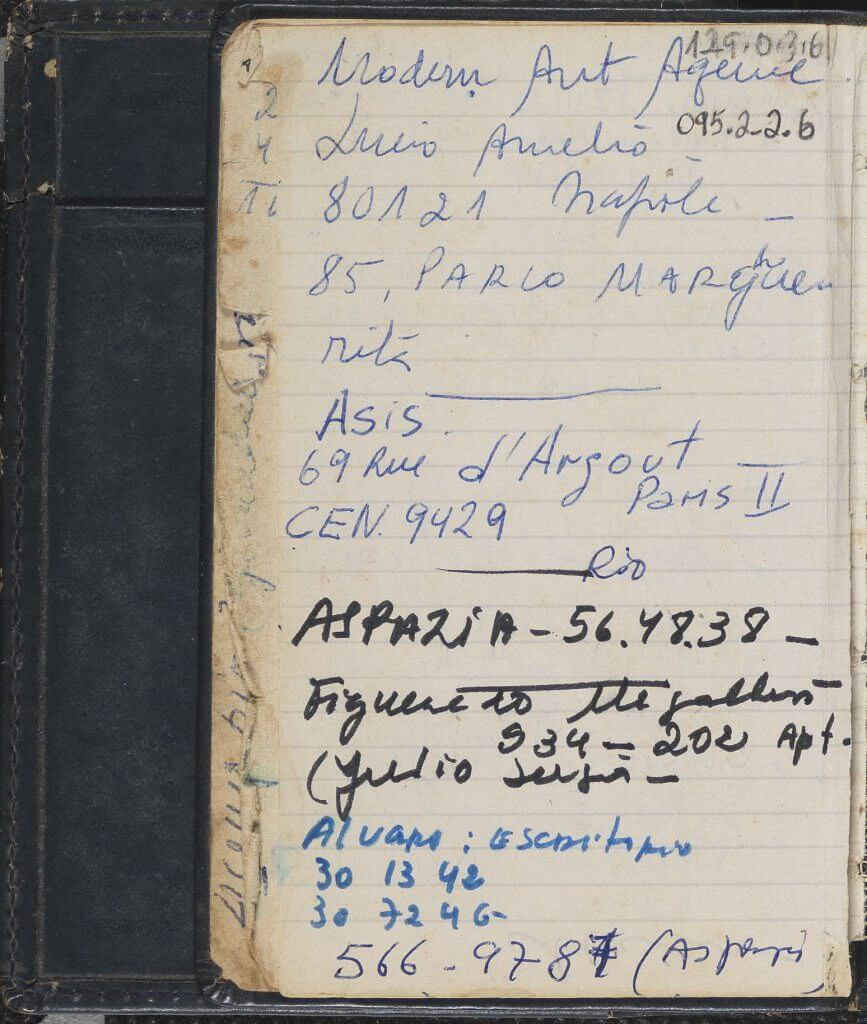 129.03.6
Modern Art Agence
Lucio Amelio -
095.2-2.6
80121 Napole -
85, PARCO MARGHUE
RITA
Asis.
69 Rue d'Argout
Paris II
CEN. 9429
Rio
ASPAZIA - 56.48.38 -
Figueiredo Magalhães
934 - 202 Apt.
(Julio Sergio -
Alvaro : Escritorio
30 13 42
30 72 46
566-9787 (Aspazia)